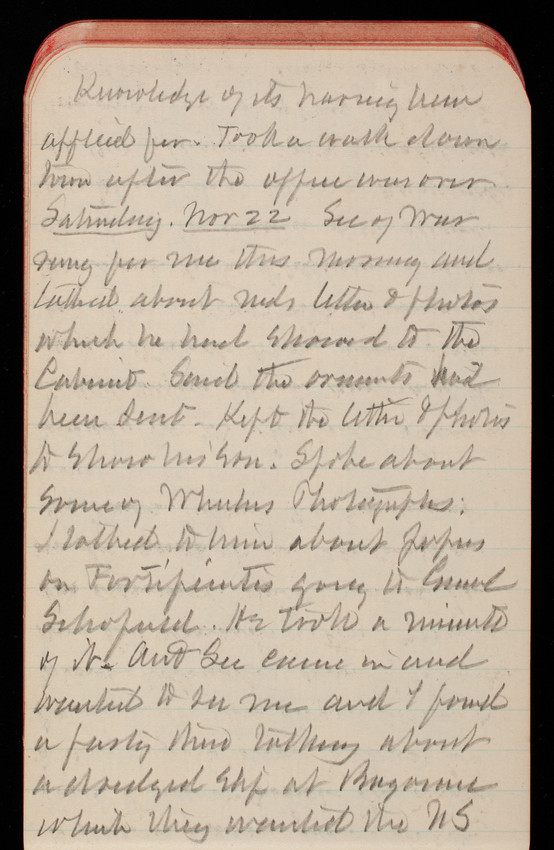 Knowledge of its having been
applied for. Took a walk down
town after the office was over
Saturday. Nov 22 Sec of War
rang for me this morning and
talked about Neds letter & photos
which he had showed to the
Cabinet. Said the
been sent. Kept the letter & photos
to show his son. Spoke about
some of Photographs.
I talked to him about papers
on Fortifications going to Genl
Schofield. He took a minute
of it. Asst Sec came in and
wanted to see me and I found
a party there talking about
a dredged slip at
which they wanted the US